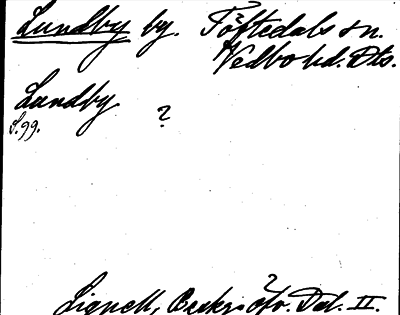 Lundby by. Töftedals sn.
Vedbo hd. Dls.
Lundby
S. 99. ?
Lignell, Beskr. öfv. Dal. II.